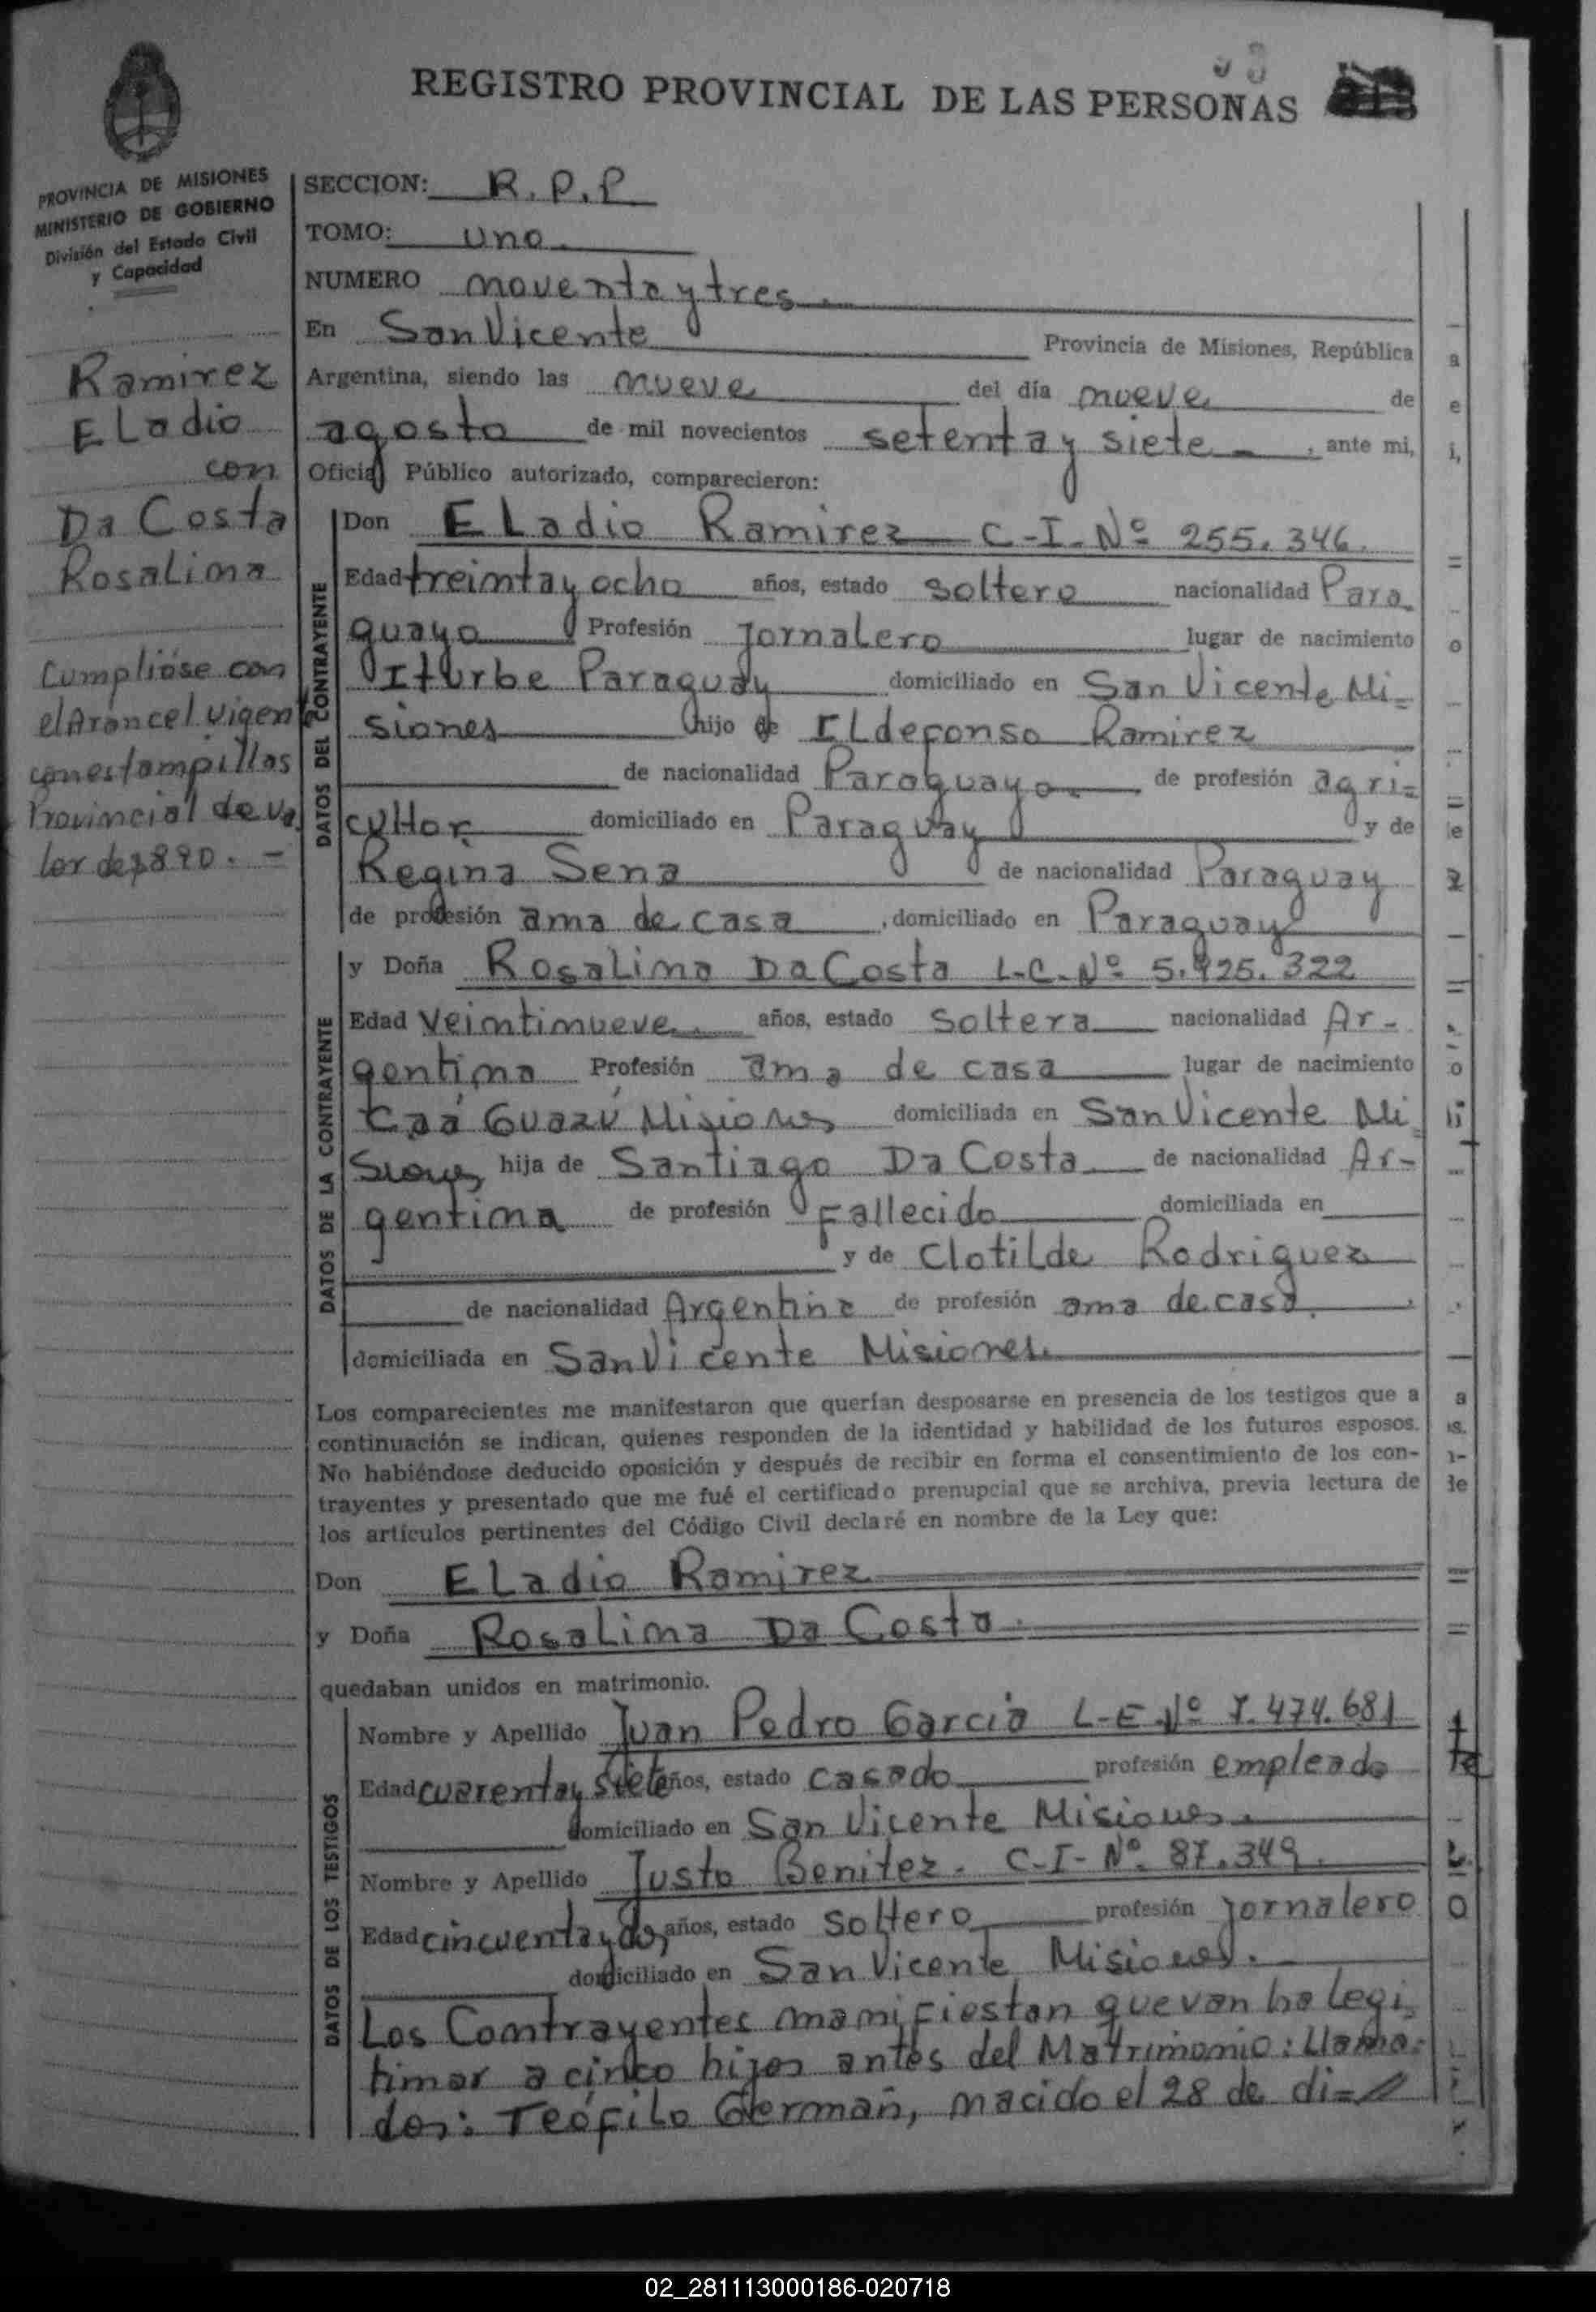 REGISTRO PROVINCIAL DE LAS PERSONAS
PROVINCIA DE MISIONES
MINISTERIO DE GOBIERNO
División del Estado Civil
y Capacidad
SECCION: R.P.P
TOMO: uno.
NUMERO noventa y tres.
En San Vicente Provincia de Misiones, República
Argentina, siendo las nueve del día nueve de
agosto de mil novecientos setenta y siete - , ante mi,
Oficial Público autorizado, comparecieron:
Ramirez
Eladio
con
Da Costa
Rosalina
Cumplióse con
el Arancel vigen
con estampillas
Provincial de va
lor de $ 890. -
DATOS DEL CONTRAYENTE
Don Eladio Ramirez C-I-Nº 255.346.
Edad treinta y ocho años, estado soltero nacionalidad Para.
guayo Profesión Jornalero lugar de nacimiento
Iturbe Paraguay domiciliado en San Vicente Mi=
siones hijo de Eldefonso Ramirez
de nacionalidad Paraguayo. de profesión agri=
cultor domiciliado en Paraguay y de
Regina Sena de nacionalidad Paraguay
de profesión ama de casa , domiciliado en Paraguay
DATOS DE LA CONTRAYENTE
y Doña Rosalina Da Costa L-C-Nº 5.925.322
Edad Veintinueve. años, estado soltera nacionalidad Ar-
gentina Profesión ama de casa lugar de nacimiento
Caá Guazú Misiones domiciliada en San Vicente Mi
siones hija de Santiago Da Costa de nacionalidad Ar-
gentina de profesión Fallecido domiciliada en
y de Clotilde Rodriguez
de nacionalidad Argentina de profesión ama de casa.
domiciliada en San Vicente Misiones.
Los comparecientes me manifestaron que querían desposarse en presencia de los testigos que a
continuación se indican, quienes responden de la identidad y habilidad de los futuros esposos.
No habiéndose deducido oposición y después de recibir en forma el consentimiento de los con-
trayentes y presentado que me fué el certificado prenupcial que se archiva, previa lectura de
los artículos pertinentes del Código Civil declaré en nombre de la Ley que:
Don Eladio Ramirez
y Doña Rosalina Da Costa.
quedaban unidos en matrimonio.
DATOS DE LOS TESTIGOS
Nombre y Apellido Juan Pedro Garcia L-E-Nº 7.474.681
Edad cuarenta y siete años, estado casado profesión empleado
domiciliado en San Vicente Misiones.
Nombre y Apellido Justo Benitez. C-I- Nº. 87.349.
Edad cincuenta y dos años, estado soltero profesión jornalero
domiciliado en San Vicente Misiones.
Los Contrayentes manifiestan que van ha legi,
timar a cinco hijos antes del Matrimonio: Llama=
dos: Teófilo Germañ, nacido el 28 de di=//
02_281113000186-020718